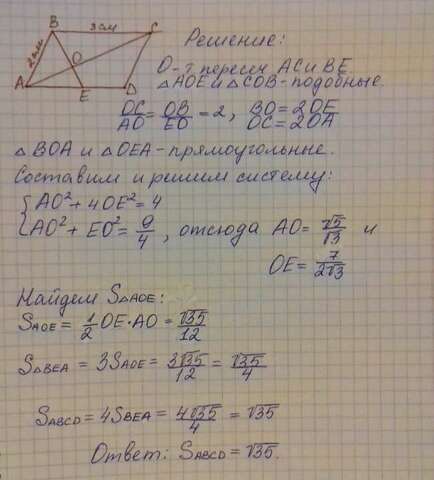 B 3см C
2см
O
A E D
Решение:
O-т. пересеч AC и BE
△AOE и △COB-подобные.
OC/AO = OB/EO = 2, BO=2OE
OC=2OA
△BOA и △OEA-прямоугольные.
Составим и решим систему:
{AO²+4OE²=4
{AO²+EO²=9/4, отсюда AO=√5/√3 и
OE=7/2√3
Найдем S△AOE:
SAOE = 1/2 OE·AO = √35/12
S△BEA = 3SAOE = 3√35/12 = √35/4
SABCD = 4SBEA = 4√35/4 = √35
Ответ: SABCD = √35.